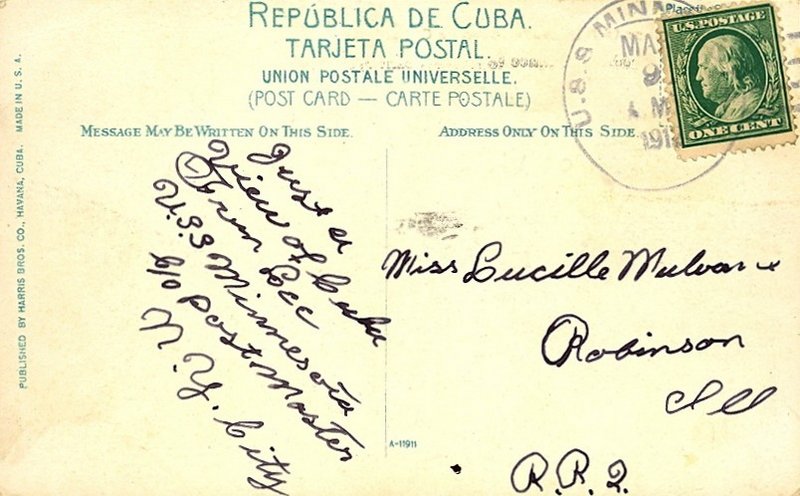 REPÚBLICA DE CUBA.
TARJETA POSTAL.
UNION POSTALE UNIVERSELLE.
(POST CARD — CARTE POSTALE)
MESSAGE MAY BE WRITTEN ON THIS SIDE.
ADDRESS ONLY ON THIS SIDE.
PUBLISHED BY HARRIS BROS. CO., HAVANA, CUBA. MADE IN U. S. A.
U.S.S MINN
MA
9
M
191
U.S. POSTAGE
ONE CENT
Just a
View of Cuba
Lee
U.S.S Minnesota
c/o Postmaster
N.Y. City
Miss Lucille
Robinson
Ill
R.R.2.
A-11911